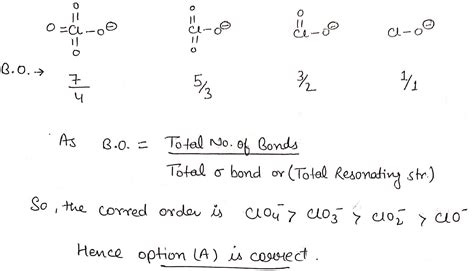 O O O
O=Cl-O⊖ Cl-O⊖ Cl-O⊖ Cl-O⊖
O O
B.O. → 7/4 5/3 3/2 1/1
As B.O. = Total No. of Bonds
Total σ bond or (Total Resonating str.)
So, the corred order is ClO4⁻ > ClO3⁻ > ClO2⁻ > ClO⁻
Hence option (A) is correct.